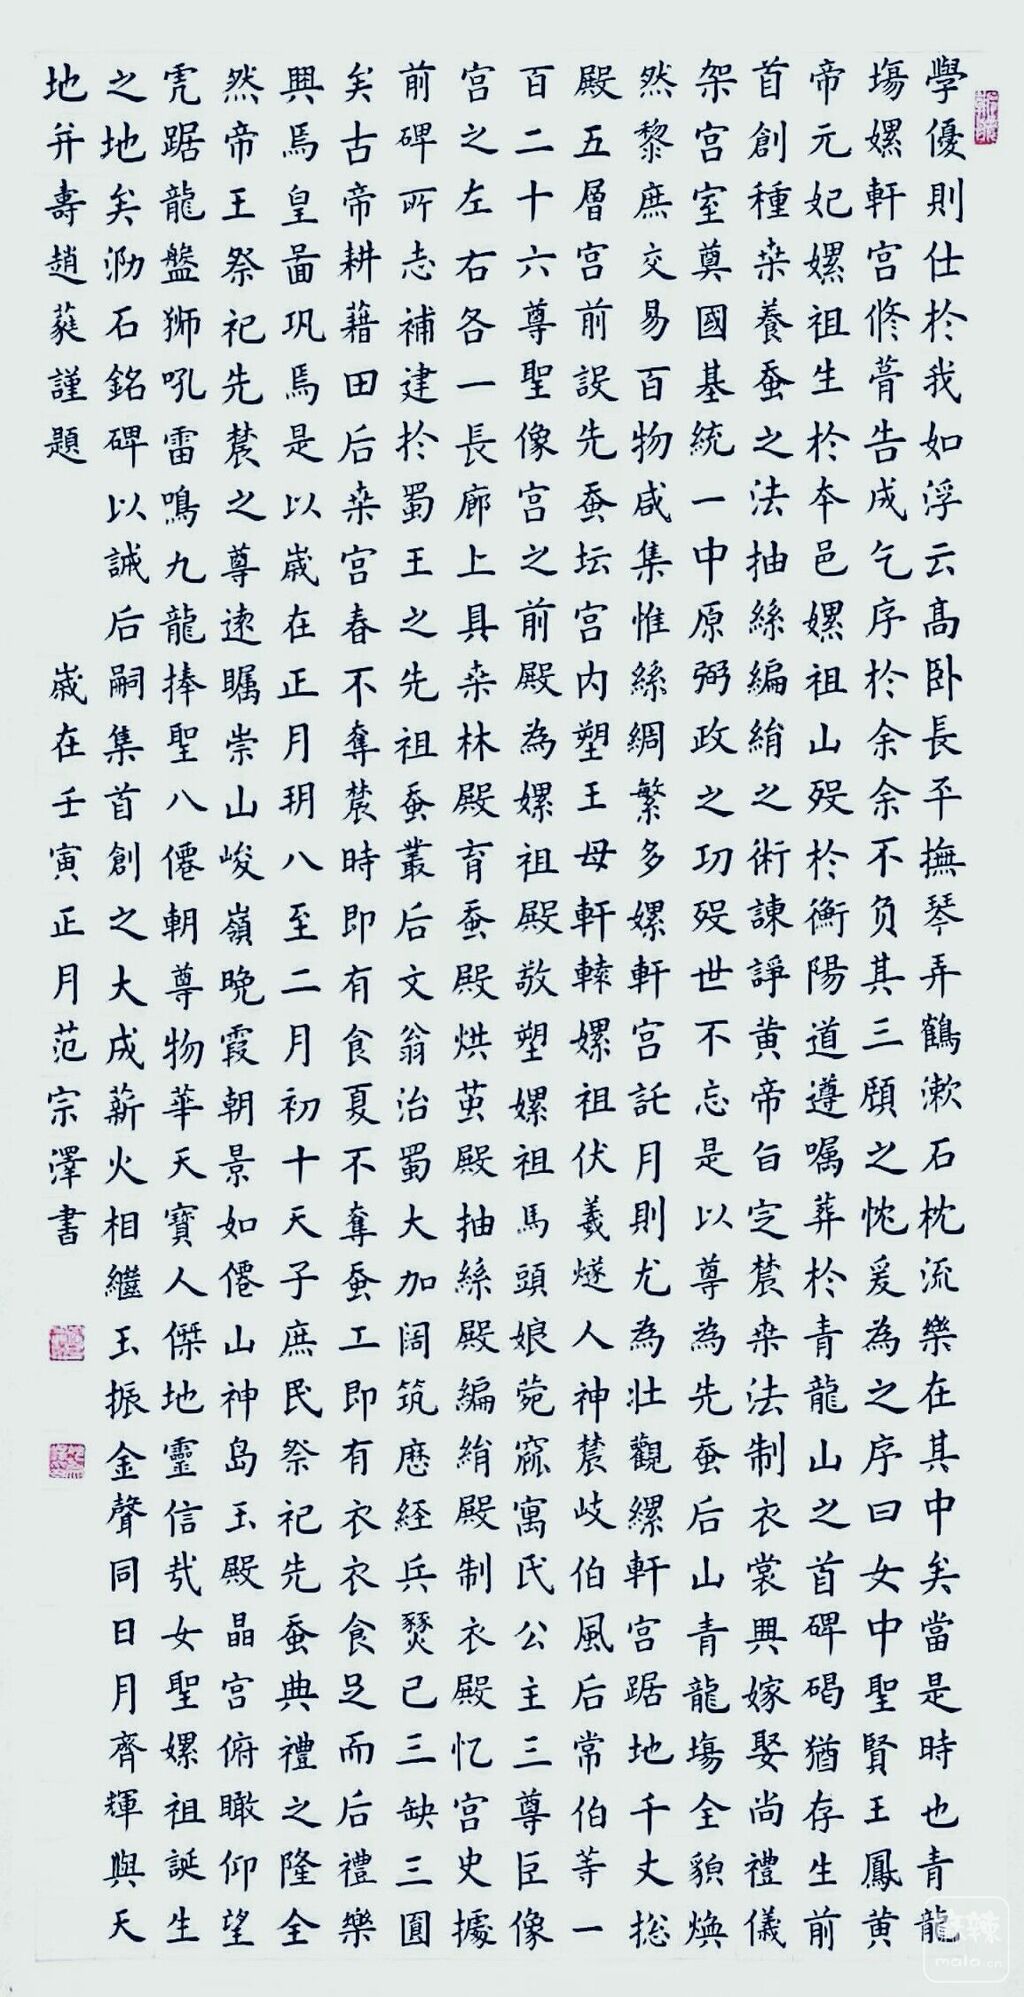 學優則仕於我如浮云高卧長平撫琴弄鶴漱石枕流樂在其中矣當是時也青龍
塲嫘軒宮修膏告成乞序於余余不负其三顧之忱爰為之序曰女中聖賢王鳳黄
帝元妃嫘祖生於本邑嫘祖山殁於衡陽道遵嘱葬於青龍山之首碑碣猶存生前
首創種桒養蚕之法抽絲編絹之術諫諍黄帝旨定農桒法制衣裳興嫁娶尚禮儀
架宮室奠國基統一中原弼政之功殁世不忘是以尊為先蚕后山青龍塲全貌煥
然黎庶交易百物咸集惟絲綢繁多嫘軒宮託月則尤為壯觀縲軒宮踞地千丈捴
殿五層宮前設先蚕坛宮内塑王母軒轅嫘祖伏羲燧人神農岐伯風后常伯等一
百二十六尊聖像宮之前殿為嫘祖殿敬塑嫘祖馬頭娘菀窳寓氏公主三尊臣像
宮之左右各一長廊上具桒林殿育蚕殿烘茧殿抽絲殿編絹殿制衣殿忆宮史據
前碑所志補建於蜀王之先祖蚕叢后文翁治蜀大加阔筑歷経兵燹已三缺三圓
矣古帝耕藉田后桒宮春不奪農時即有食夏不奪蚕工即有衣衣食足而后禮樂
興焉皇啚巩焉是以嵗在正月玥八至二月初十天子庶民祭祀先蚕典禮之隆全
然帝王祭祀先農之尊逺瞩崇山峻嶺晚霞朝景如僊山神岛玉殿晶宮俯瞰仰望
虎踞龍盤狮吼雷鳴九龍捧聖八僊朝尊物華天寶人傑地靈信㦲女聖嫘祖誕生
之地矣泐石銘碑以誡后嗣集首創之大成薪火相繼玉振金聲同日月齊輝與天
地并壽趙蕤謹題
嵗在壬寅正月范宗澤書
麻辣
mala.cn